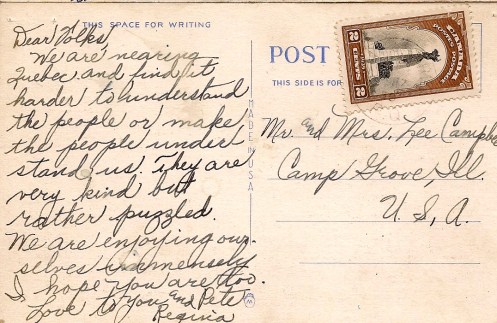 THIS SPACE FOR WRITING
Dear Folks,
We are nearing
Quebec and find it
harder to understand
the people or make
the people under-
stand us. They are
very kind but
rather puzzled.
We are enjoying our-
selves immensely
I hope you are too.
Love to you and Pete
Regina
MADE IN USA
POST
THIS SIDE IS FOR
CANADA
POSTES POSTAGE
2 CENTS 2
Mr. and Mrs. Lee Campbe
Camp Grove, Ill.
U. S. A.